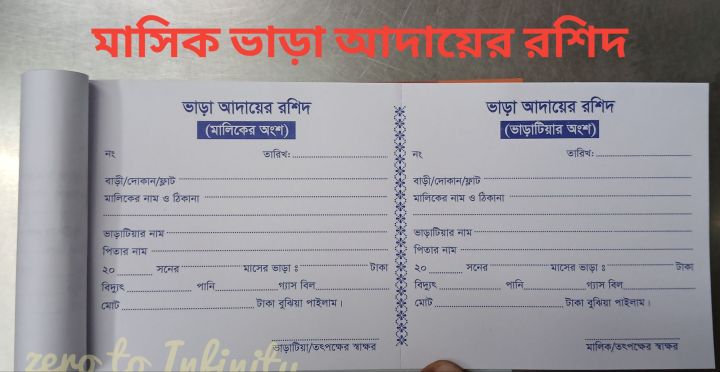 মাসিক ভাড়া আদায়ের রশিদ
ভাড়া আদায়ের রশিদ
(মালিকের অংশ)
নং তারিখ:
বাড়ী/দোকান/ফ্লাট
মালিকের নাম ও ঠিকানা
ভাড়াটিয়ার নাম
পিতার নাম
২০ সনের মাসের ভাড়া ঃ টাকা
বিদ্যুৎ পানি গ্যাস বিল
মোট টাকা বুঝিয়া পাইলাম।
ভাড়াটিয়া/তৎপক্ষের স্বাক্ষর
ভাড়া আদায়ের রশিদ
(ভাড়াটিয়ার অংশ)
নং তারিখ:
বাড়ী/দোকান/ফ্লাট
মালিকের নাম ও ঠিকানা
ভাড়াটিয়ার নাম
পিতার নাম
২০ সনের মাসের ভাড়া ঃ টাকা
বিদ্যুৎ পানি গ্যাস বিল
মোট টাকা বুঝিয়া পাইলাম।
মালিক/তৎপক্ষের স্বাক্ষর
zero to Infinity